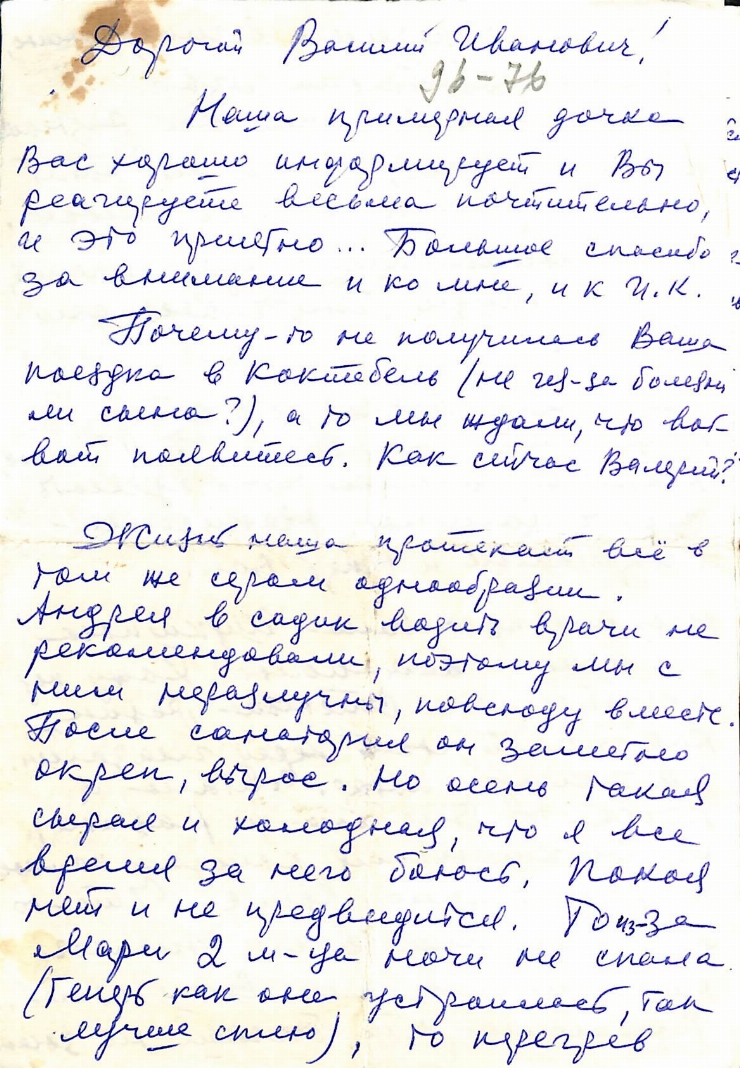 Дорогой Василий Иванович!
96-76
Наша примерная дочка
Вас хорошо информирует и Вы
реагируете весьма почтительно,
и это приятно... Большое спасибо
за внимание и ко мне, и к И.К.
Почему-то не получилась Ваша
поездка в Коктебель (не из-за болезни
ли сына?), а то мы ждали, что вот-
вот появитесь. Как сейчас Валерий?
Жизнь наша протекает всё в
том же сером однообразии.
Андрея в садик водить врачи не
рекомендовали, поэтому мы с
ним неразлучны, повсюду вместе.
После санатория он заметно
окреп, вырос. Но осень такая
сырая и холодная, что я все
время за него боюсь. Покоя
нет и не предвидится. То из-за
Мары 2 м-ца ночи не спала
(теперь как она устроилась, так
лучше сплю), то перегрев